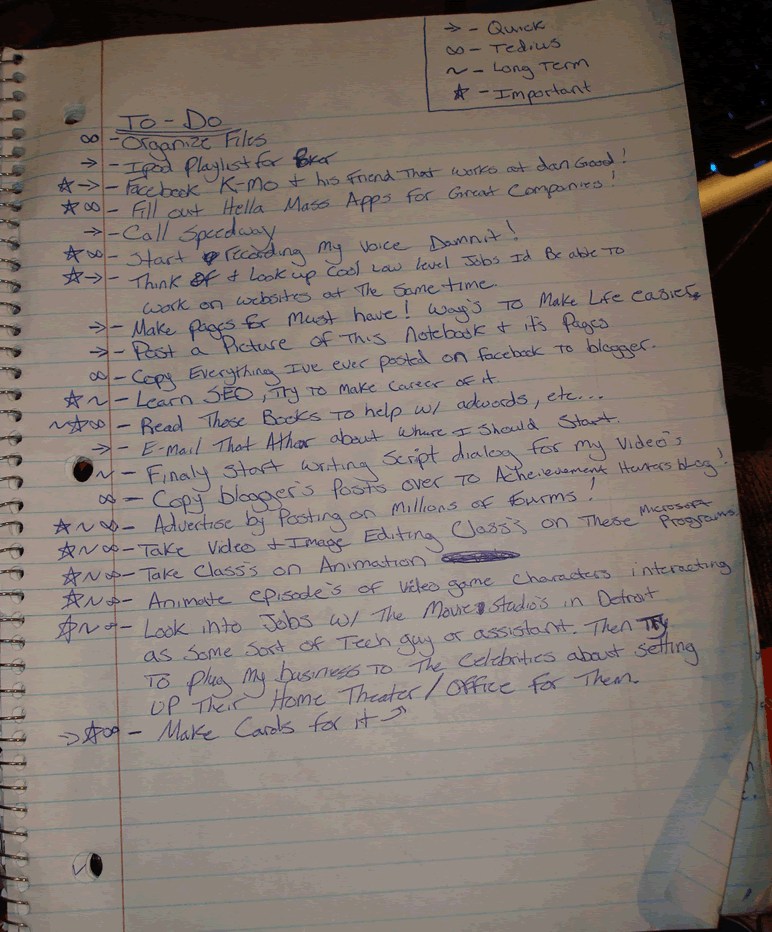 → - Quick
∞ - Tedius
~ - Long Term
☆ - Important
To - Do
∞ - Organize Files
→ - Ipod Playlist for
☆→ - Facebook K-Mo + his Friend That works at dan Good!
☆∞ - Fill out Hella Mass Apps for Great Companies!
→ - Call Speedway
☆∞ - Start recording my voice Damnit!
☆→ - Think of + Look up Cool Low level Jobs Id Be able To
work on websites at The Same time.
→ - Make pages for Must have! Way's To Make Life easier.
→ - Post a Picture of This Notebook + it's Pages
∞ - Copy Everything I've ever posted on facebook To blogger.
☆~ - Learn SEO, Try To Make Career of it.
~☆∞ - Read Those Books To help w/ adwords, etc...
→ - E-mail That Athor about where I Should Start.
~ - Finaly Start writing Script dialog for my Video's
∞ - Copy blogger's posts over To Acheievement Hunters blog!
☆~∞ - Advertise by Posting on Millions of Fourms!
☆~∞ - Take Video + Image Editing Class's on These Microsoft Programs.
☆~∞ - Take Class's on Animation
☆~∞ - Animate episode's of video game characters interacting
☆~∞ - Look into Jobs w/ The Movie Studio's in Detroit
as Some Sort of Tech guy or assistant. Then Try
To plug my business To The Celebrities about setting
UP Their Home Theater / Office for Them.
→☆∞ - Make Cards for it